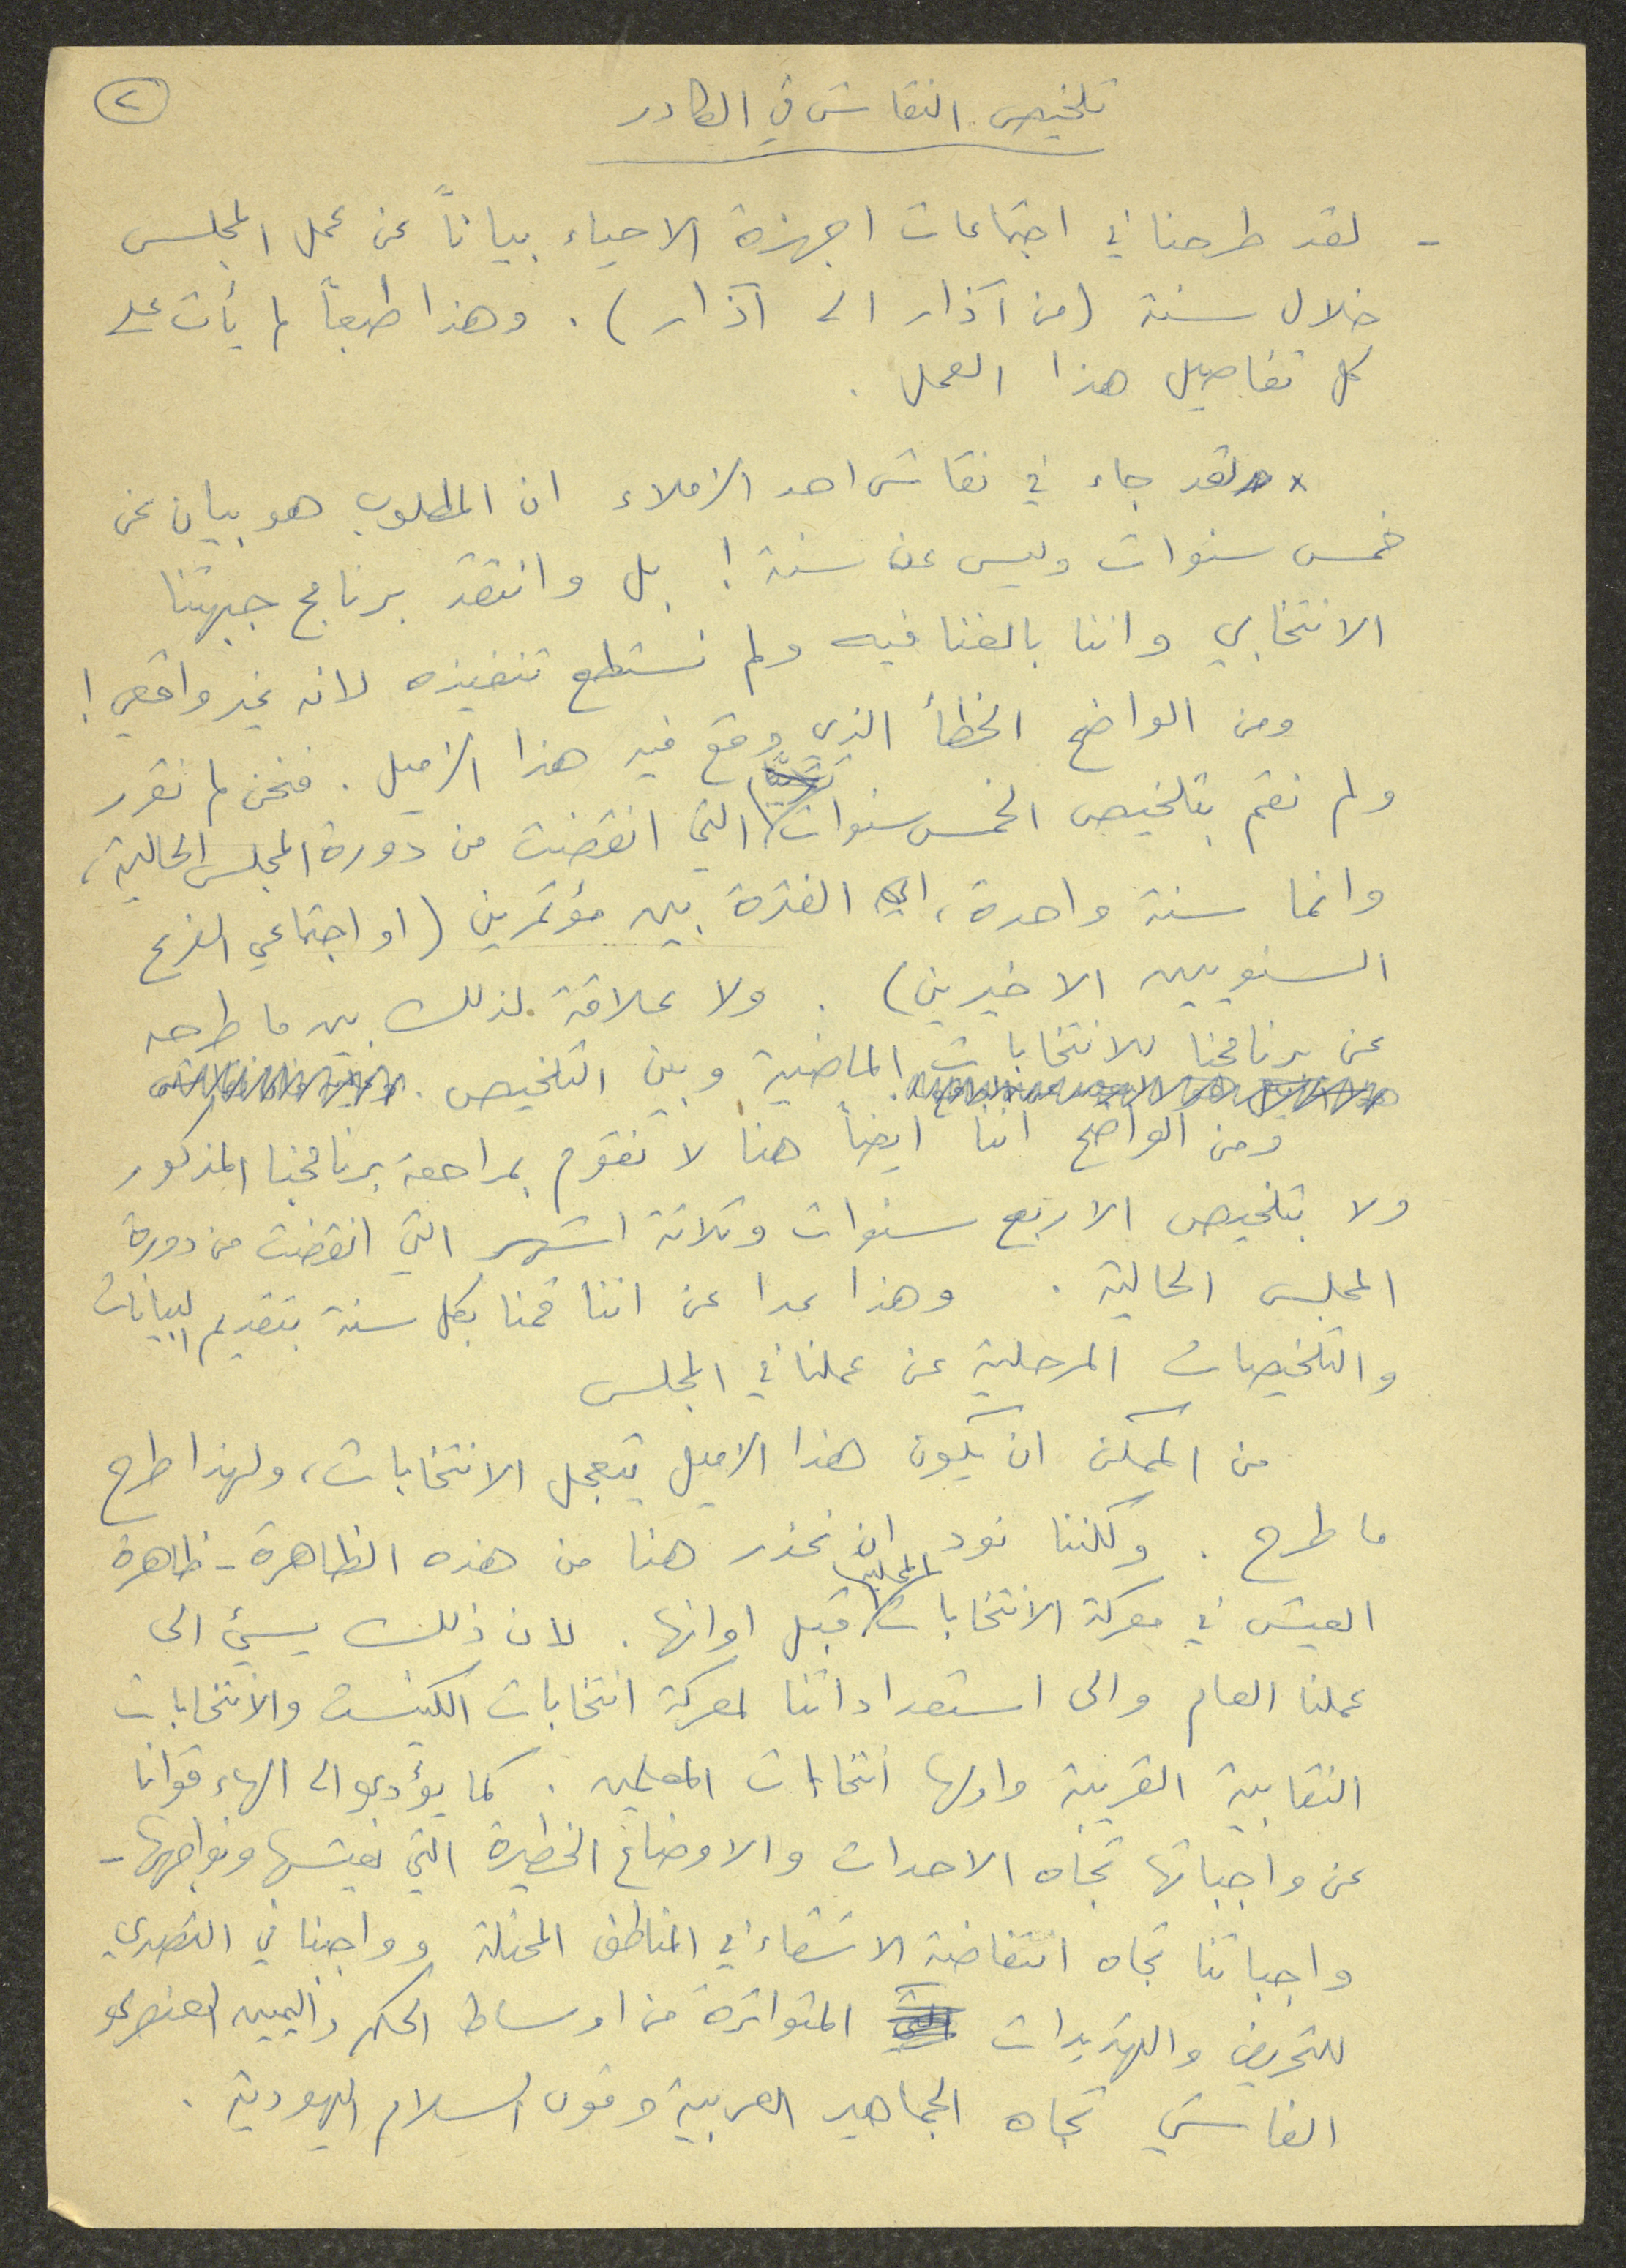 ٢
تلخيص النقاش في الكادر
- لقد طرحنا في اجتماعات اجهزة الاحياء بياناً عن عمل المجلس
خلال سنة (من آذار الى آذار). وهذا طبعاً لم يأت على
كل تفاصيل هذا العمل .
× لقد جاء في نقاش احد الزملاء ان المطلوب هو بيان عن
خمس سنوات وليس عن سنة ! بل وانتقد برنامج جبهتنا
الانتخابي واننا بالغنا فيه ولم نستطع تنفيذه لانه غير واقعي !
ومن الواضح الخطأ الذي وقع فيه هذا الزميل . فنحن لم نقرر
ولم نقم بتلخيص الخمس سنوات التي انقضت من دورة المجلس الحالية،
وانما سنة واحدة، اي الفترة بين مؤتمرين (او اجتماعي الفرع
السنويين الاخيرين) . ولا علاقة لذلك بين ما طرحه
عن برنامجنا للانتخابات الماضية وبين التلخيص .
ومن الواضح اننا ايضاً هنا لا نقوم بمراجعة برنامجنا المذكور
ولا بتلخيص الاربع سنوات وثلاثة اشهر التي انقضت من دورة
المجلس الحالية . وهذا عدا عن اننا قمنا بكل سنة بتقديم البيانات
والتلخيصات المرحلية عن عملنا في المجلس
من الممكن ان يكون هذا الزميل يتعجل الانتخابات، ولهذا طرح
ما طرح . ولكننا نود ان نحذر هنا من هذه الظاهرة - ظاهرة
العيش في معركة الانتخابات المحلية قبل اوانها . لان ذلك يسيئ الى
عملنا العام والى استعداداتنا لمعركة انتخابات الكنيست والانتخابات
النقابية القريبة واولها انتخابات المعلمين . كما يؤدي الى الهاء قوانا
عن واجباتها تجاه الاحداث والاوضاع الخطيرة التي نعيشها ونواجهها -
واجباتنا تجاه انتفاضة الاشقاء في المناطق المحتلة وواجبنا في التصدي
للتحريض والتهديدات المتواترة من اوساط الحكم واليمين العنصري
الفاشي تجاه الجماهير العربية وقوى السلام اليهودية .